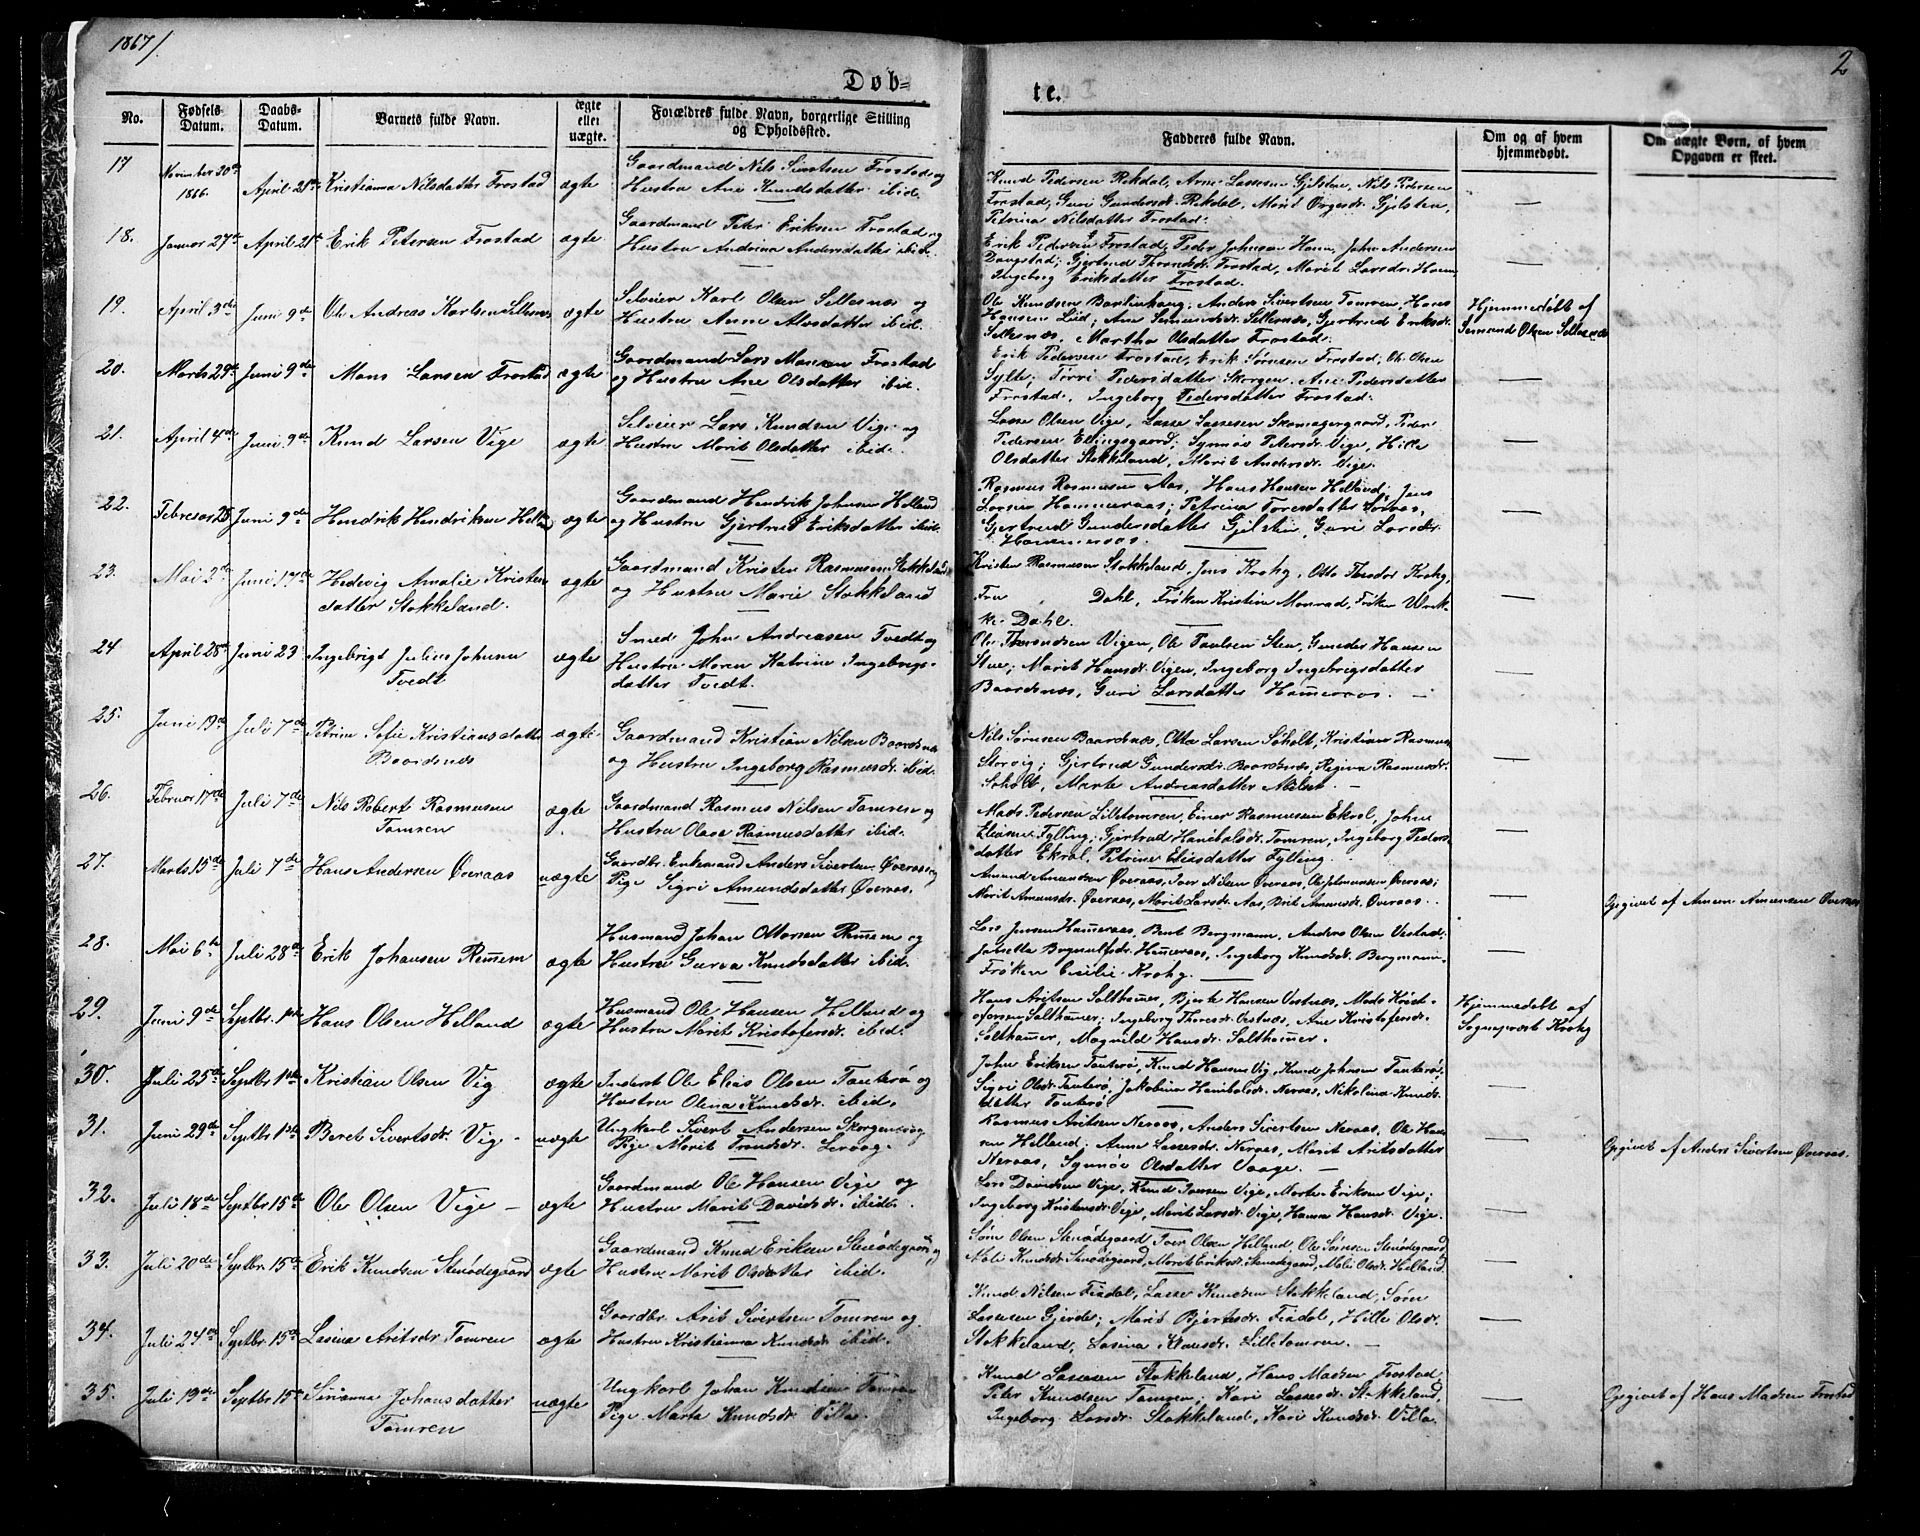 1867/.
2
Døb=
te.
No. Fødsels Datum. Daabs-Datum. Barnets fulde Navn. ægte eller uægte. Forældres fulde Navn, borgerlige Stilling og Opholdssted. Fadderes fulde Navn. Om og af hvem hjemmedøbt. Om uægte Børn, af hvem Opgaven er skeet.
17 November 30te 1866. April 21de Kristianna Nilsdatter Frostad ægte Gaardmand Nils Sivertsen Frostad og
Hustru Ane Knudsdatter ibid.
Knud Pedersen Rekdal, Arne Lassesen Gjelsten, Nils Pedersen
Frostad, Guri Gundersdr. Rekdal, Marit Gjelsten,
Petrina Nilsdatter Frostad. —
18. Januar 27de April 21de Erik Petersen Frostad ægte Gaardmand Peter Eriksen Frostad og
Hustru Andrina Andersdatter ibid.
Erik Pedersen Frostad, Peder Johnsen Hamn, John Andersen
Daugstad; Gjertrud Thronsdr. Frostad, Marit Larsdr. Hamn
Ingeborg Eriksdatter Frostad. —
19. April 3de Juni 9de Ole Andreas Karlsen Sellesnes ægte Selveier Karl Olsen Sellesnes og
Hustru Anne Alvsdatter ibid.
Ole Knudsen Barlinhaug, Anders Sivertsen Tomren, Hans
Hansen Lied, Ane Semundsdr. Sellesnæs, Gjertrud Eriksdr.
Sellesnæs, Martha Olsdatter Frostad.
Hjemmedøbt af
Semund Olsen Sellesnes
20. Marts 29de Juni 9de Mons Larsen Frostad ægte Gaardmand Lars Monsen Frostad
og Hustru Ane Olsdatter ibid.
Erik Pedersen Frostad, Erik Sørensen Frostad, Ole Olsen
Sylte; Torri Pedersdatter Skorgen, Ane Pedersdatter
Frostad, Ingeborg Pedersdatter Frostad. —
21. April 4de Juni 9de Knud Larsen Vige ægte Selveier Lars Knudsen Vige og
Hustru Marit Olsdatter ibid.
Lasse Olsen Vige, Lasse Lassesen Skomagergaard, Peder
Pedersen Ellingsgaard; Synnøv Petersdr. Vige, Hille
Olsdatter Stokkeland, Marit Andersdr. Vige. —
22. Februar 28 Juni 9de Hendrik Hendriksen Helland ægte Gaardmand Hendrik Johnsen Helland
og Hustru Gjertrud Eriksdatter ibid.
Rasmus Rasmussen Aas, Hans Hansen Helland, Jens
Larsen Hammeraas; Petrina Toresdatter
Gjertrud Gundersdatter Gjelsten, Guri Larsdr.
Hammeraas. —
23. Mai 2de Juni 17de Hedevig Amalie Kristens
datter Stokkeland. ægte Gaardmand Kristen Rasmussen Stokkeland
og Hustru Marie Stokkeland
Kristen Rasmussen Stokkeland, Jens Krohg, Otto Theodor Krohg,
Fru Dahl, Frøken Kristine Monrad, Frøken Ulrik-
ke Dahl. —
24 April 28de Juni 23 Ingebrigt Julius Johnsen
Tvedt ægte Smed John Andreasen Tvedt og
Hustru Maren Katrine Ingebrigs-
datter Tvedt.
Ole Thronsen Vigen, Ole Paulsen Sten, Gunder Hansen
Stue; Marit Hansdr. Vigen, Ingeborg Ingebrigsdatter
Baardsnæs, Guri Larsdatter Hammeraas. —
25. Juni 19de Juli 7de Petrine Sofie Kristiansdatter
Baardsnæs ægte Gaardmand Kristian Nilsen Baardsnæs
og Hustru Ingeborg Rasmusdr. ibid.
Nils Sørensen Baardsnæs, Otto Larsen Søholt, Kristian Rasmussen
Storvig; Gjertrud Gundersdr. Baardsnæs, Regina Rasmusdr.
Søholt, Marte Andreasdatter Melset. —
26. Februar 17de Juli 7de Nils Robert Rasmussen
Tomren ægte Gaardmand Rasmus Nilsen Tomren og
Hustru Olave Rasmusdatter ibid.
Mads Pedersen Lilletomren, Einer Rasmussen Ekrol, John
Eliasen Fylling; Gjertrud Hanibalsdr. Tomren, Ingeborg Peders-
datter Ekrol, Petrine Eliasdatter Fylling. —
27. Marts 15de Juli 7de Hans Andersen Øveraas uægte Gaardbr. Enkemand Anders Sivertsen Øveraas og
Pige Sigri Amundsdatter Øveraas.
Amund Amundsen Øveraas, Iver Nilsen Øveraas, Ole Johannesen Øveraas;
Marit Amundsdr. Øveraas, Marit Larsdr. Aas, Brit Amundsdr. Øveraas. —
Opgivet af Amund Amundsen Øveraas
28. Mai 6te Juli 28de Erik Johansen Remmem ægte Husmand Johan Ottersen Remmem og
Hustru Gurea Knudsdatter ibid.
Lars Jensen Hammeraas, Bent Bergmann, Anders Olsen Vestad,
Hammeraas, Ingeborg Knudsdr. Bergmann,
Frøken Cecilie Krohg. —
29. Juni 9de Septbr. 1ste Hans Olsen Helland ægte Husmand Ole Hansen Helland og
Hustru Marit Kristofersdr. ibid.
Hans Aritsen Salthammer, Bjerte Hansen Vestnæs, Mads Krist-
ofersen Salthammer; Ingeborg Thoresdr. Vestnæs, Ane Kristofersdr.
Salthammer, Magnild Hansdr. Salthammer.
Hjemmedøbt af
Sogneprest Krohg
30. Juli 25de Septbr 1ste Kristian Olsen Vig ægte Inderst Ole Elias Olsen Tauterø og
Hustru Olina Knudsdr. ibid.
John Eriksen Tauterø, Knud Hansen Vig, Knud Johnsen Tauterø,
Sigri Olsdr. Tauterø, Jakobina Hanibalsdr. Neraas, Nikolina Knuds-
datter Tauterø. —
31. Juni 29de Septbr. 1ste Beret Sivertsdr. Vige — uægte Ungkarl Sivert Andersen Skorgenes og
Pige Marit Tronsdr. Lervaag.
Rasmus Aritsen Neraas, Anders Sivertsen Neraas, Ole Han
sen Helland; Anne Lassesdr. Neraas, Marit Aritsdatter
Neraas, Synnøv Olsdatter Vaage. —
Opgivet af Anders Sivertsen Øveraas.
32. Juli 18de Septbr. 15de Ole Olsen Vige — ægte Gaardmand Ole Hansen Vige og
Hustru Marit Davidsdr. ibid.
Lars Davidsen Vige, Knud Iversen Vige, Morten Eriksen Vige;
Ingeborg Kristensdr. Vige, Marit Larsdr. Vige, Hanna Hansdr. Vige.
33. Juli 20de Septbr. 15de Erik Knudsen Stenødegaard ægte Gaardmand Knud Eriksen Stenødegaard og
Hustru Marit Olsdatter ibid.
Søren Olsen Stenødegaard, Iver Olsen Helland, Ole Sørensen Stenødegaard,
Mali Knudsdr. Stenødegaard, Marit Eriksdr. Stenødegaard, Mali Olsdr. Helland.
34. Juli 24de Septbr. 15de Lasina Aritsdr. Tomren ægte Gaardbr. Arit Sivertsen Tomren og
Hustru Kristianna Knudsdr. ibid.
Knud Nilsen Fixdal, Lasse Knudsen Stokkeland, Søren
Lassesen Gjerde; Marit Bjertesdr. Fixdal, Hille Olsdr.
Stokkeland, Lasina Klausdr. Lilletomren. —
35. Juli 19de Septbr. 15de Sirianna Johansdatter
Tomren uægte Ungkarl Johan Knudsen Tomren
Pige Marta Knudsdr. Villa.
Knud Lassesen Stokkeland, Hans Madsen Frostad
Peter Knudsen Tomren; Kari Lassesdr. Stokkeland,
Ingeborg Larsdr. Stokkeland, Kari Knudsdr. Villa.
Opgivet af Hans Madsen Frostad